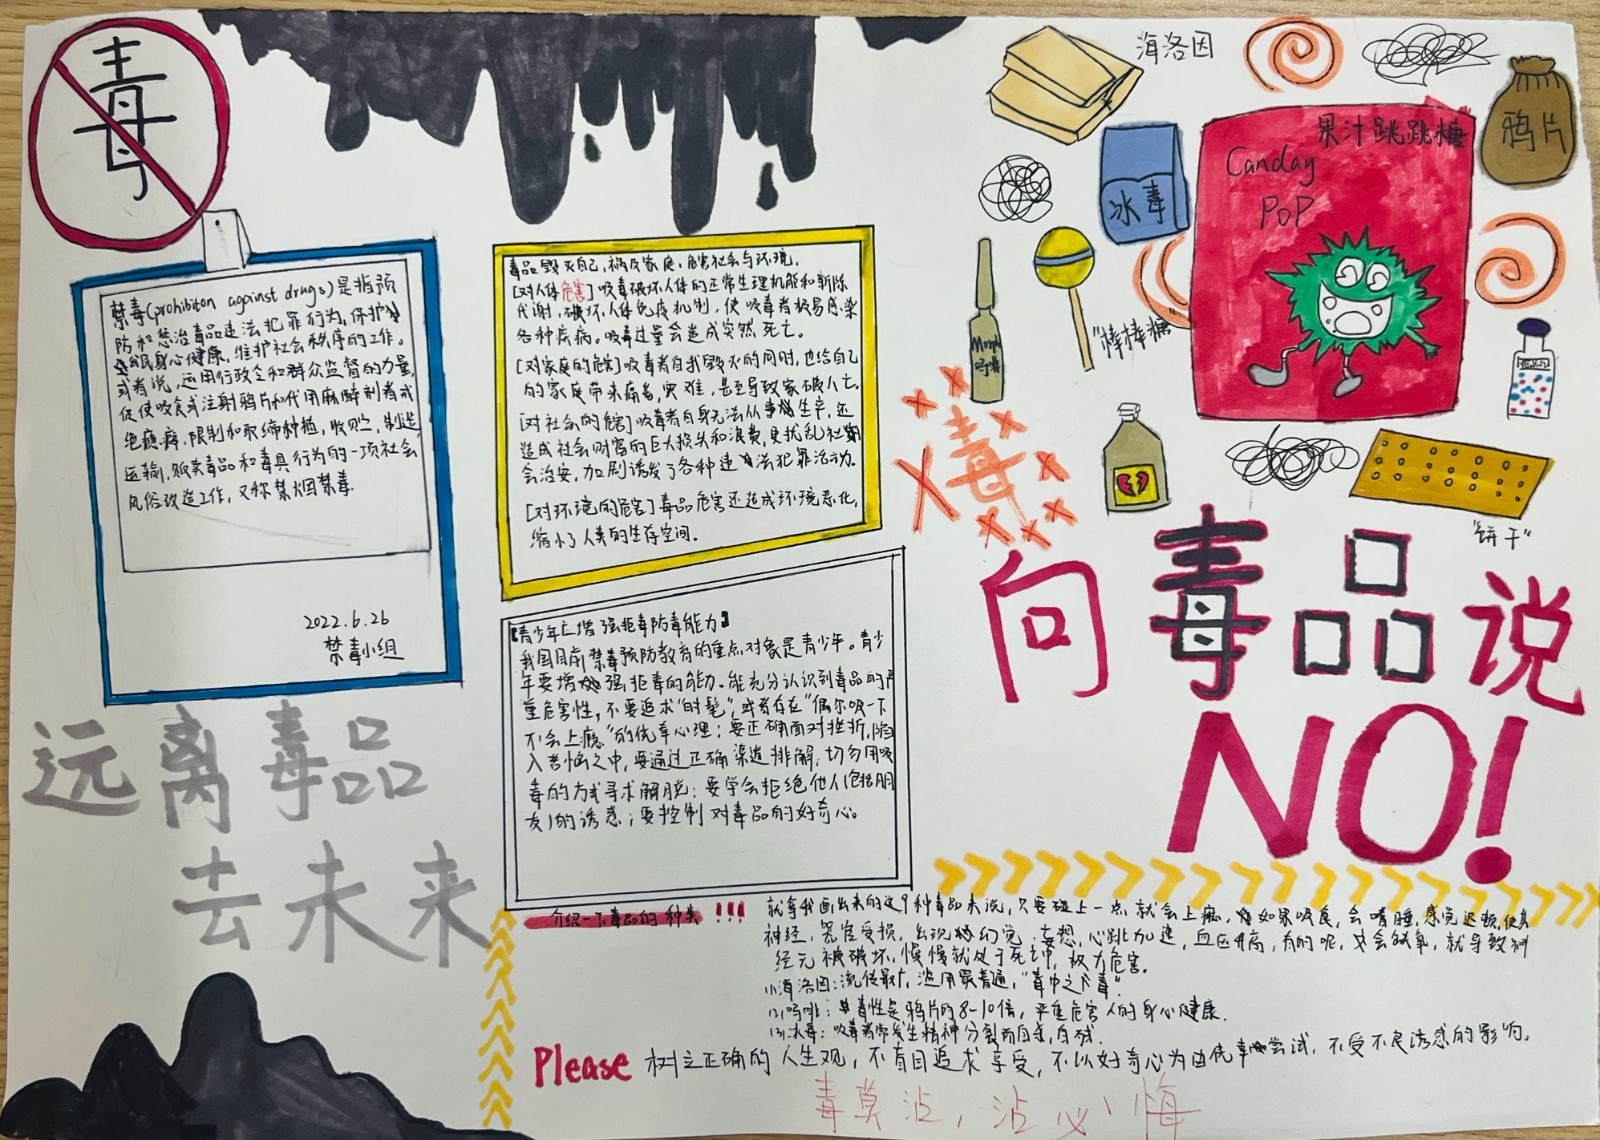 毒
禁毒(prohibiton against drugs)是指预
防和惩治毒品违法犯罪行为,保护
民身心健康,维护社会秩序的工作。
或者说,运用行政令和群众监督的力量,
促使吸食或注射鸦片和代用麻醉剂者戒
绝瘾癖,限制和取缔种植,收贮,制造
运输,贩卖毒品和毒具行为的一项社会
风俗改造工作,又称禁烟禁毒.
2022.6.26
禁毒小组
远离毒品
去未来
毒品毁灭自己,祸及家庭,危害社会与环境.
[对人体危害]吸毒破坏人体的正常生理机能和新陈
代谢,破坏人体免疫机制,使吸毒者极易感染
各种疾病。吸毒过量会造成突然死亡。
[对家庭的危害]吸毒者自我毁灭的同时,也给自己
的家庭带来痛苦,灾难,甚至导致家破人亡。
[对社会的危害]吸毒者自身无法从事生产,还
造成社会财富的巨大损失和浪费,且扰乱社
会治安,加剧诱发了各种违法犯罪活动.
[对环境的危害]毒品危害还造成环境恶化,
缩小了人类的生存空间。
【青少年亡增强拒毒防毒能力】
我国目前禁毒预防教育的重点对象是青少年。青少
年要增强拒毒的能力。能充分认识到毒品的严
重危害性,不要追求"时髦",或者存在"偶尔吸一下
不会上瘾"的侥幸心理;要正确面对挫折,陷
入苦恼之中,要通过正确渠道排解,切勿用吸
毒的方式寻求解脱;要学会拒绝他人(包括朋
友)的诱惑;要控制对毒品的好奇心。
海洛因
冰毒
果汁跳跳糖
Canday
POP
鸦片
"棒棒糖"
吗啡
毒
"饼干"
向毒品说
NO!
介绍一下毒品的种类!!!
就拿我画出来的这9种毒品来说,只要碰上一点就会上瘾,如果吸食,会嗜睡,感觉迟顿,使其
神经,器官受损,出现幻觉,妄想,心跳加速,血压升高,有的呢,又会缺氧,就导致神
经元被破坏,慢慢就处于死亡,极力危害。
(1)海洛因:流传最广,滥用最普遍,"毒中之毒".
(2)吗啡:毒性是鸦片的8-10倍,严重危害人的身心健康.
(3)冰毒:吸毒者常发生精神分裂而自杀,自残.
Please 树立正确的人生观,不盲目追求享受,不以好奇心为由侥幸尝试,不受不良诱惑的影响。
毒莫沾,沾必悔